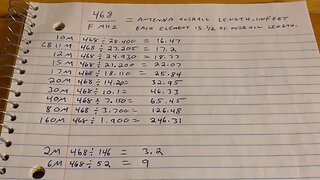 468 = ANTENNA OVERALL LENGTH, IN FEET
F MHZ EACH ELEMENT IS 1/2 OF OVERALL LENGTH.
10M 468÷28.400 = 16.47
CB 11M 468÷27.205 = 17.2
12M 468÷24.930 = 18.77
15M 468÷21.200 = 22.07
17M 468÷18.110 = 25.84
20M 468÷14.20 = 32.95
30M 468÷10.1 = 46.33
40M 468÷7.150 = 65.45
80M 468÷3.700 = 126.48
160M 468÷1.900 = 246.31
2M 468÷146 = 3.2
6M 468÷52 = 9